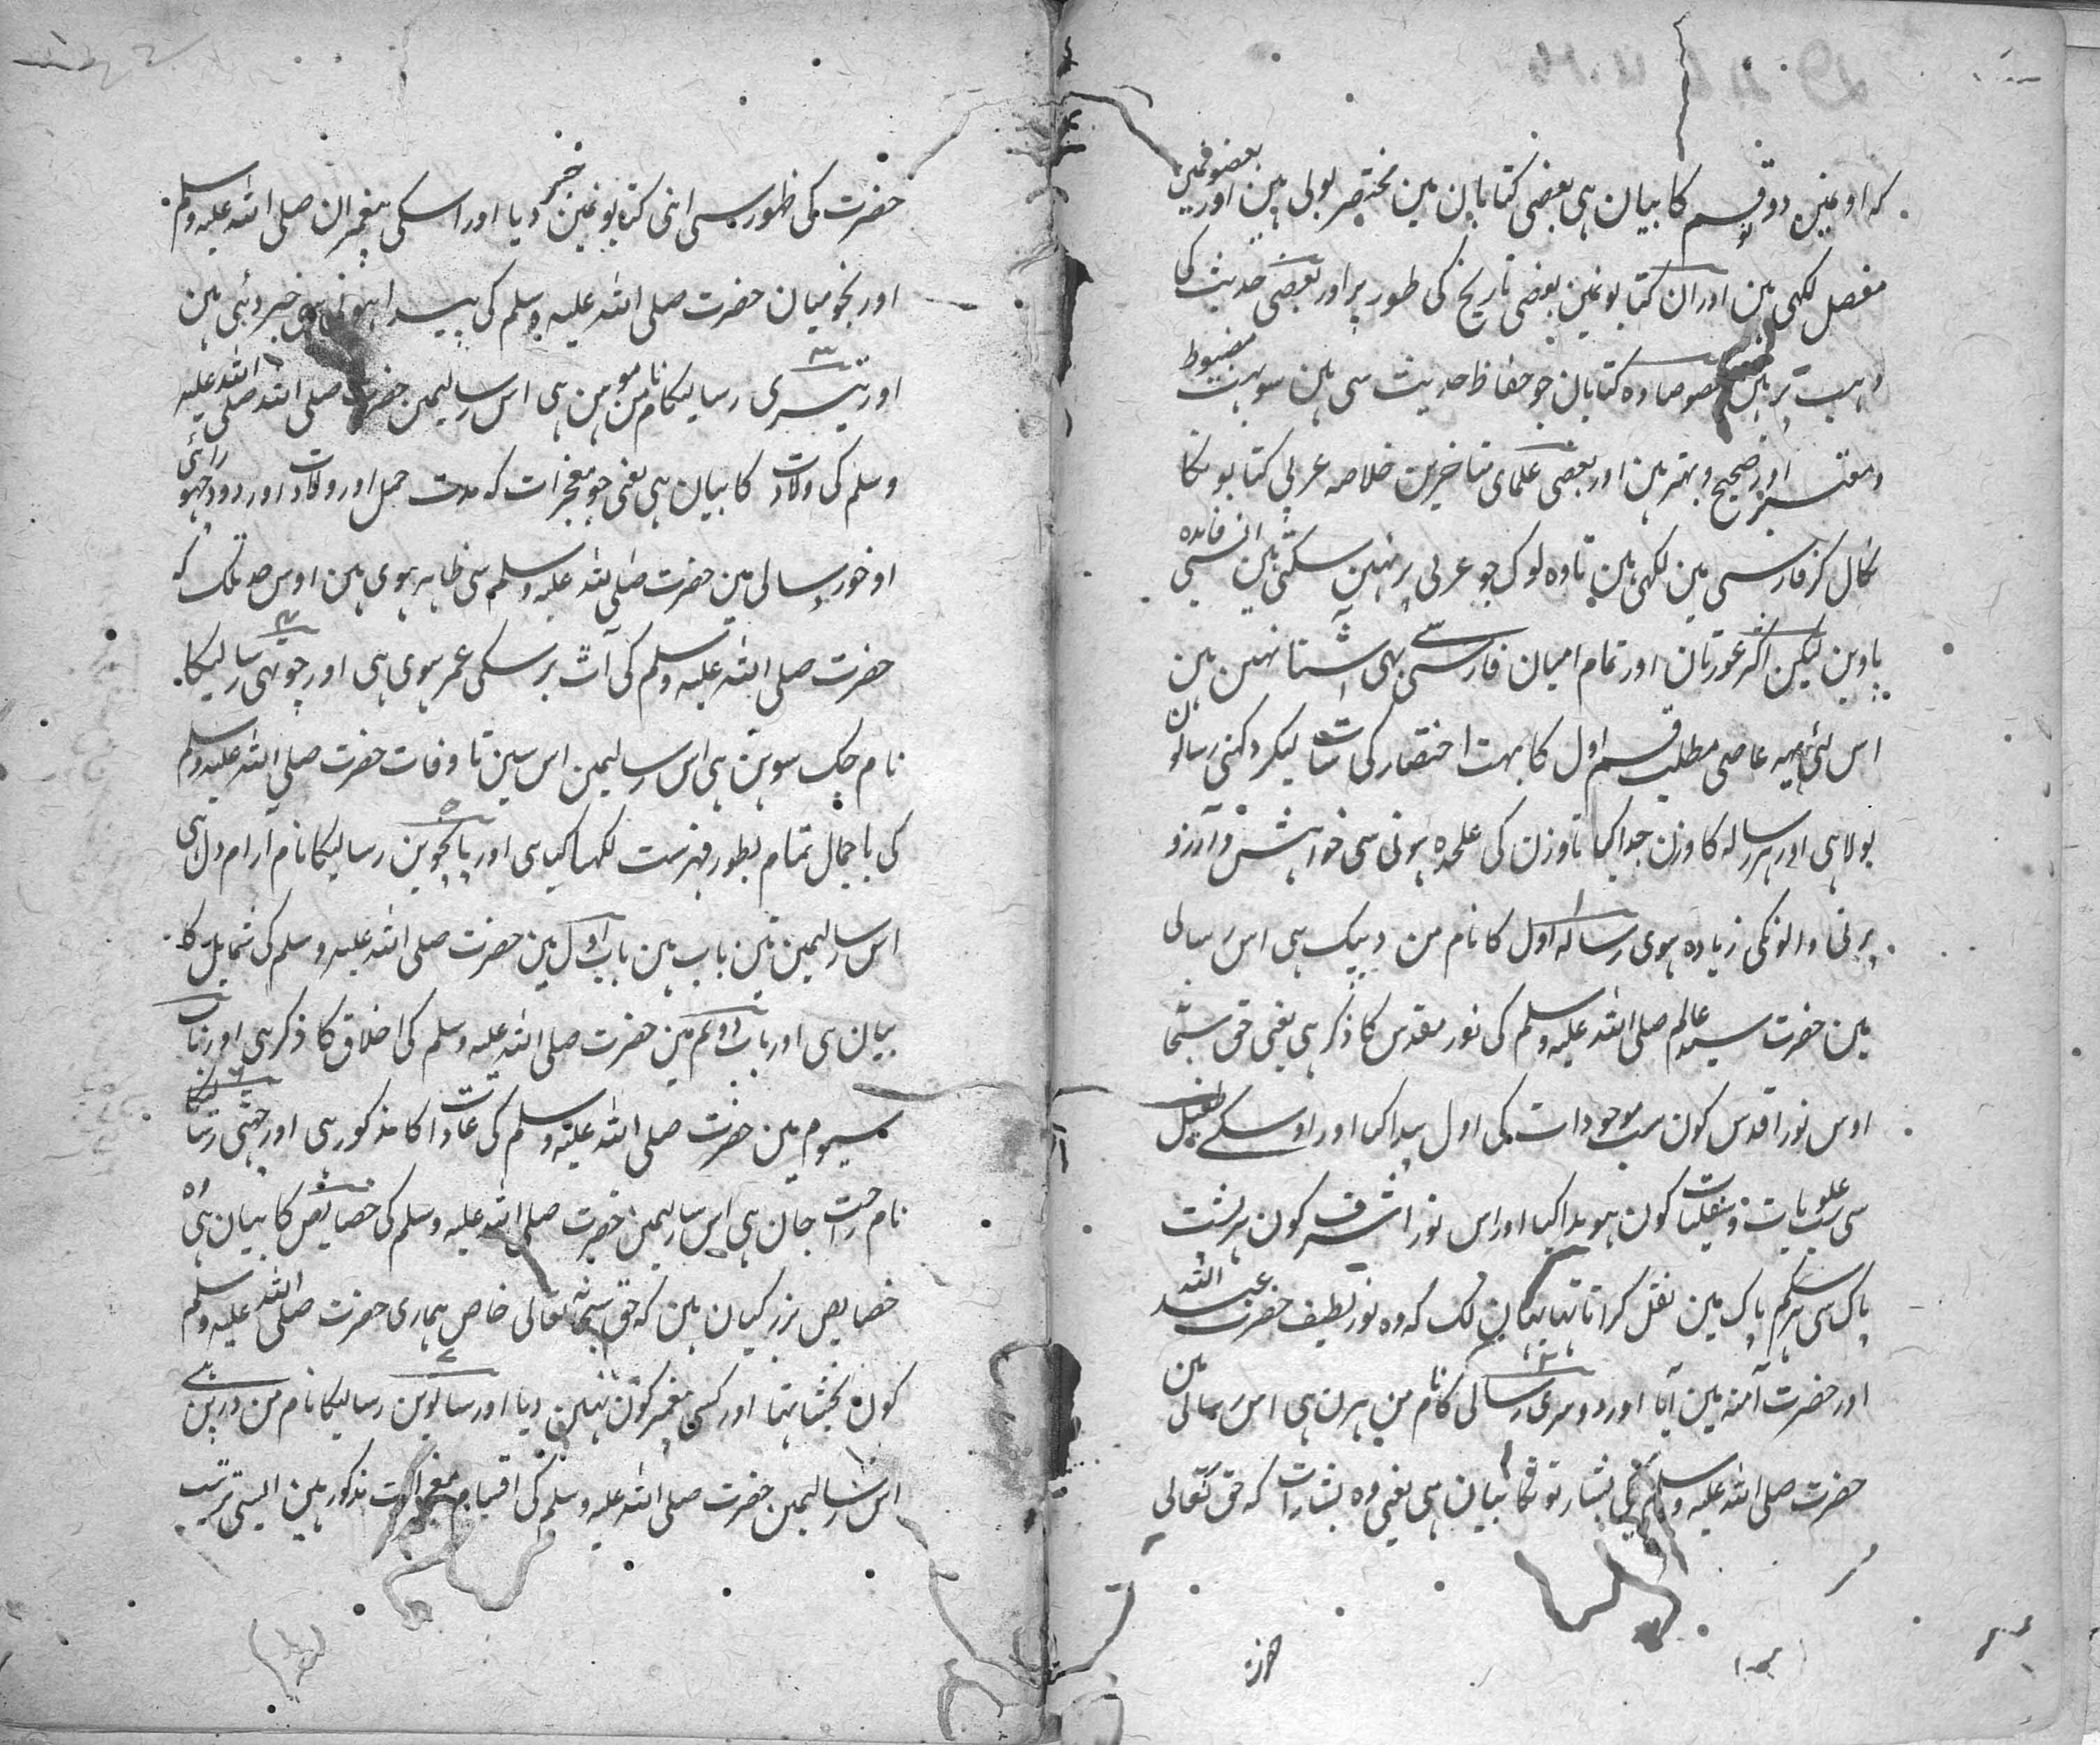 که اونمین دو قسم کا بیان ہی بعضی کتابان مین مختصر بولی ہین اور بعضونمین
مفصل لکہی ہین اور ان کتابونمین بعضی تاریخ کی طور پر اور بعضی حدیث کی
وہب پر ہین خصوصا وہ کتابان جو حفاظ حدیث سی ہین سو بہت مضبوط
و معتبر اور صحیح و بہتر ہین اور بعضی علمای متاخرین خلاصہ عربی کتابونکا
نکال کر فارسی مین لکہی ہین تا وہ لوک جو عربی پر نہین سکتی ہین انسی فائدہ
پاوین لیکن اکثر عورتان اور تمام امیان فارسی سے بہی آشنا نہین ہین
اس لئی یہہ عاصی مطلب قسم اول کا بہت اختصار کی سات لیکر دکہنی رسالون
بولا ہی اور ہر رسالہ کا وزن جدا کیا تا وزن کی علحدہ ہونی سی خواہش و آرزو
پرنی والونکی زیادہ ہوی رسالہ اول کا نام من دیپک ہی اس رسالی
مین حضرت سید عالم صلی اللہ علیہ وسلم کی نور مقدس کا ذکر ہی یعنی حق سبحا
اوس نور اقدس کون سب موجودات کی اول پیدا کیا اور اوسکے طفیل
سی سب علویات و سفلیات کون ہویدا کیا اور اس نور اشرف کون ہر پشت
پاک سی ہر شکم پاک مین نقل کراتا تہا یہان لک که وہ نور لطیف حضرت عبد اللہ
اور حضرت آمنہ مین آیا اور دوسری رسالی کا نام من ہرن ہی اس رسالی مین
حضرت صلی اللہ علیہ وسلم کی بشارتونکا بیان ہی یعنی وہ بشارات که حق تعالی
حضرت کی ظہور سی اپنی کتابونمین خبر دیا اور اسکی پیغمبران صلی اللہ علیہ وسلم
اور نجومیان حضرت صلی اللہ علیہ وسلم کی پیدا ہونی سی خبر دئی ہین
اور تیسری رسالیکا نام من موہن ہی اس رسالیمین حضرت صلی اللہ علیہ
وسلم کی ولادت کا بیان ہی یعنی جو معجزات که مدت حمل اور ولادت اور دود
او خورد سالی مین حضرت صلی اللہ علیہ وسلم سی ظاہر ہوی ہین اوس حد تلک که
حضرت صلی اللہ علیہ وسلم کی آٹ برسکی عمر ہوی ہی اور چوتہی رسالیکا
نام جک سوہن ہی اس رسالیمین اس سین تا وفات حضرت صلی اللہ علیہ وسلم
کی باجمال تمام بطور فہرست لکہا کیا ہی اور پانچوین رسالیکا نام آرام دل ہی
اس رسالیمین تین باب ہین باب اول مین حضرت صلی اللہ علیہ وسلم کی شمایل کا
بیان ہی اور باب دوم مین حضرت صلی اللہ علیہ وسلم کی اخلاق کا ذکر ہی اور باب
سیوم مین حضرت صلی اللہ علیہ وسلم کی عادات کا مذکور ہی اور چہٹی رسالیکا
نام راحت جان ہی اس رسالیمین حضرت صلی اللہ علیہ وسلم کی خصایص کا بیان ہی
خصایص بزرکیان ہین که حق سبحانہ تعالی خاص ہماری حضرت صلی اللہ علیہ وسلم
کون بخشا تہا اور کسی پیغمبر کون نہین دیا اور ساتوین رسالیکا نام من درپن ہی
اس رسالیمین حضرت صلی اللہ علیہ وسلم کی اقسام معجزات مذکور ہین ایسی ترتیب